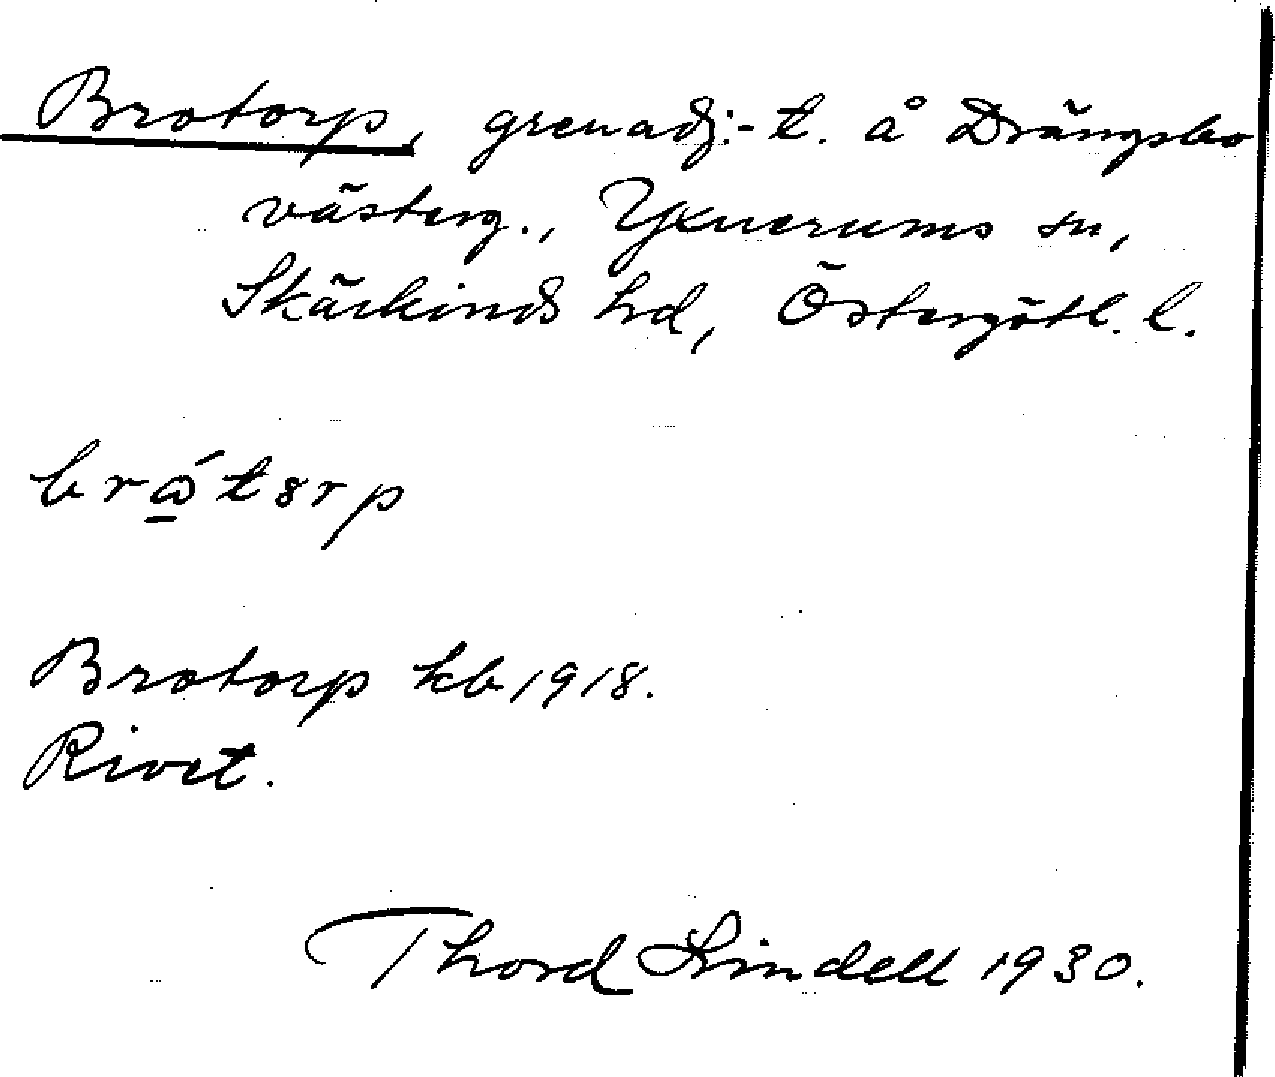 Brotorp, grenadj:-t. å Drängsbo
västerg., Yxnerums sn,
Skärkinds hd, Östergötl. l.
Brotorp kb 1918.
Rivet.
Thord Lindell 1930.